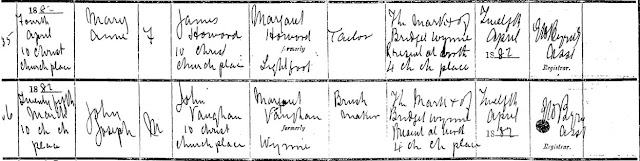 35 1882 Fourth April 10 Christ church place Mary Anne F James Howood 10 Christ church place Margaret Howood formerly Lightfoot Tailor The Mark X of Bridget Wynne Present at birth 4 ch ch place Twelfth April 1882 Registrar.
36 1882 Twenty fifth March 10 ch ch place John Joseph M John Vaughan 10 Christ church place Margaret Vaughan formerly Wynne Brush maker The Mark X of Bridget Wynne Present at birth 4 ch ch place Twelfth April 1882 Registrar.